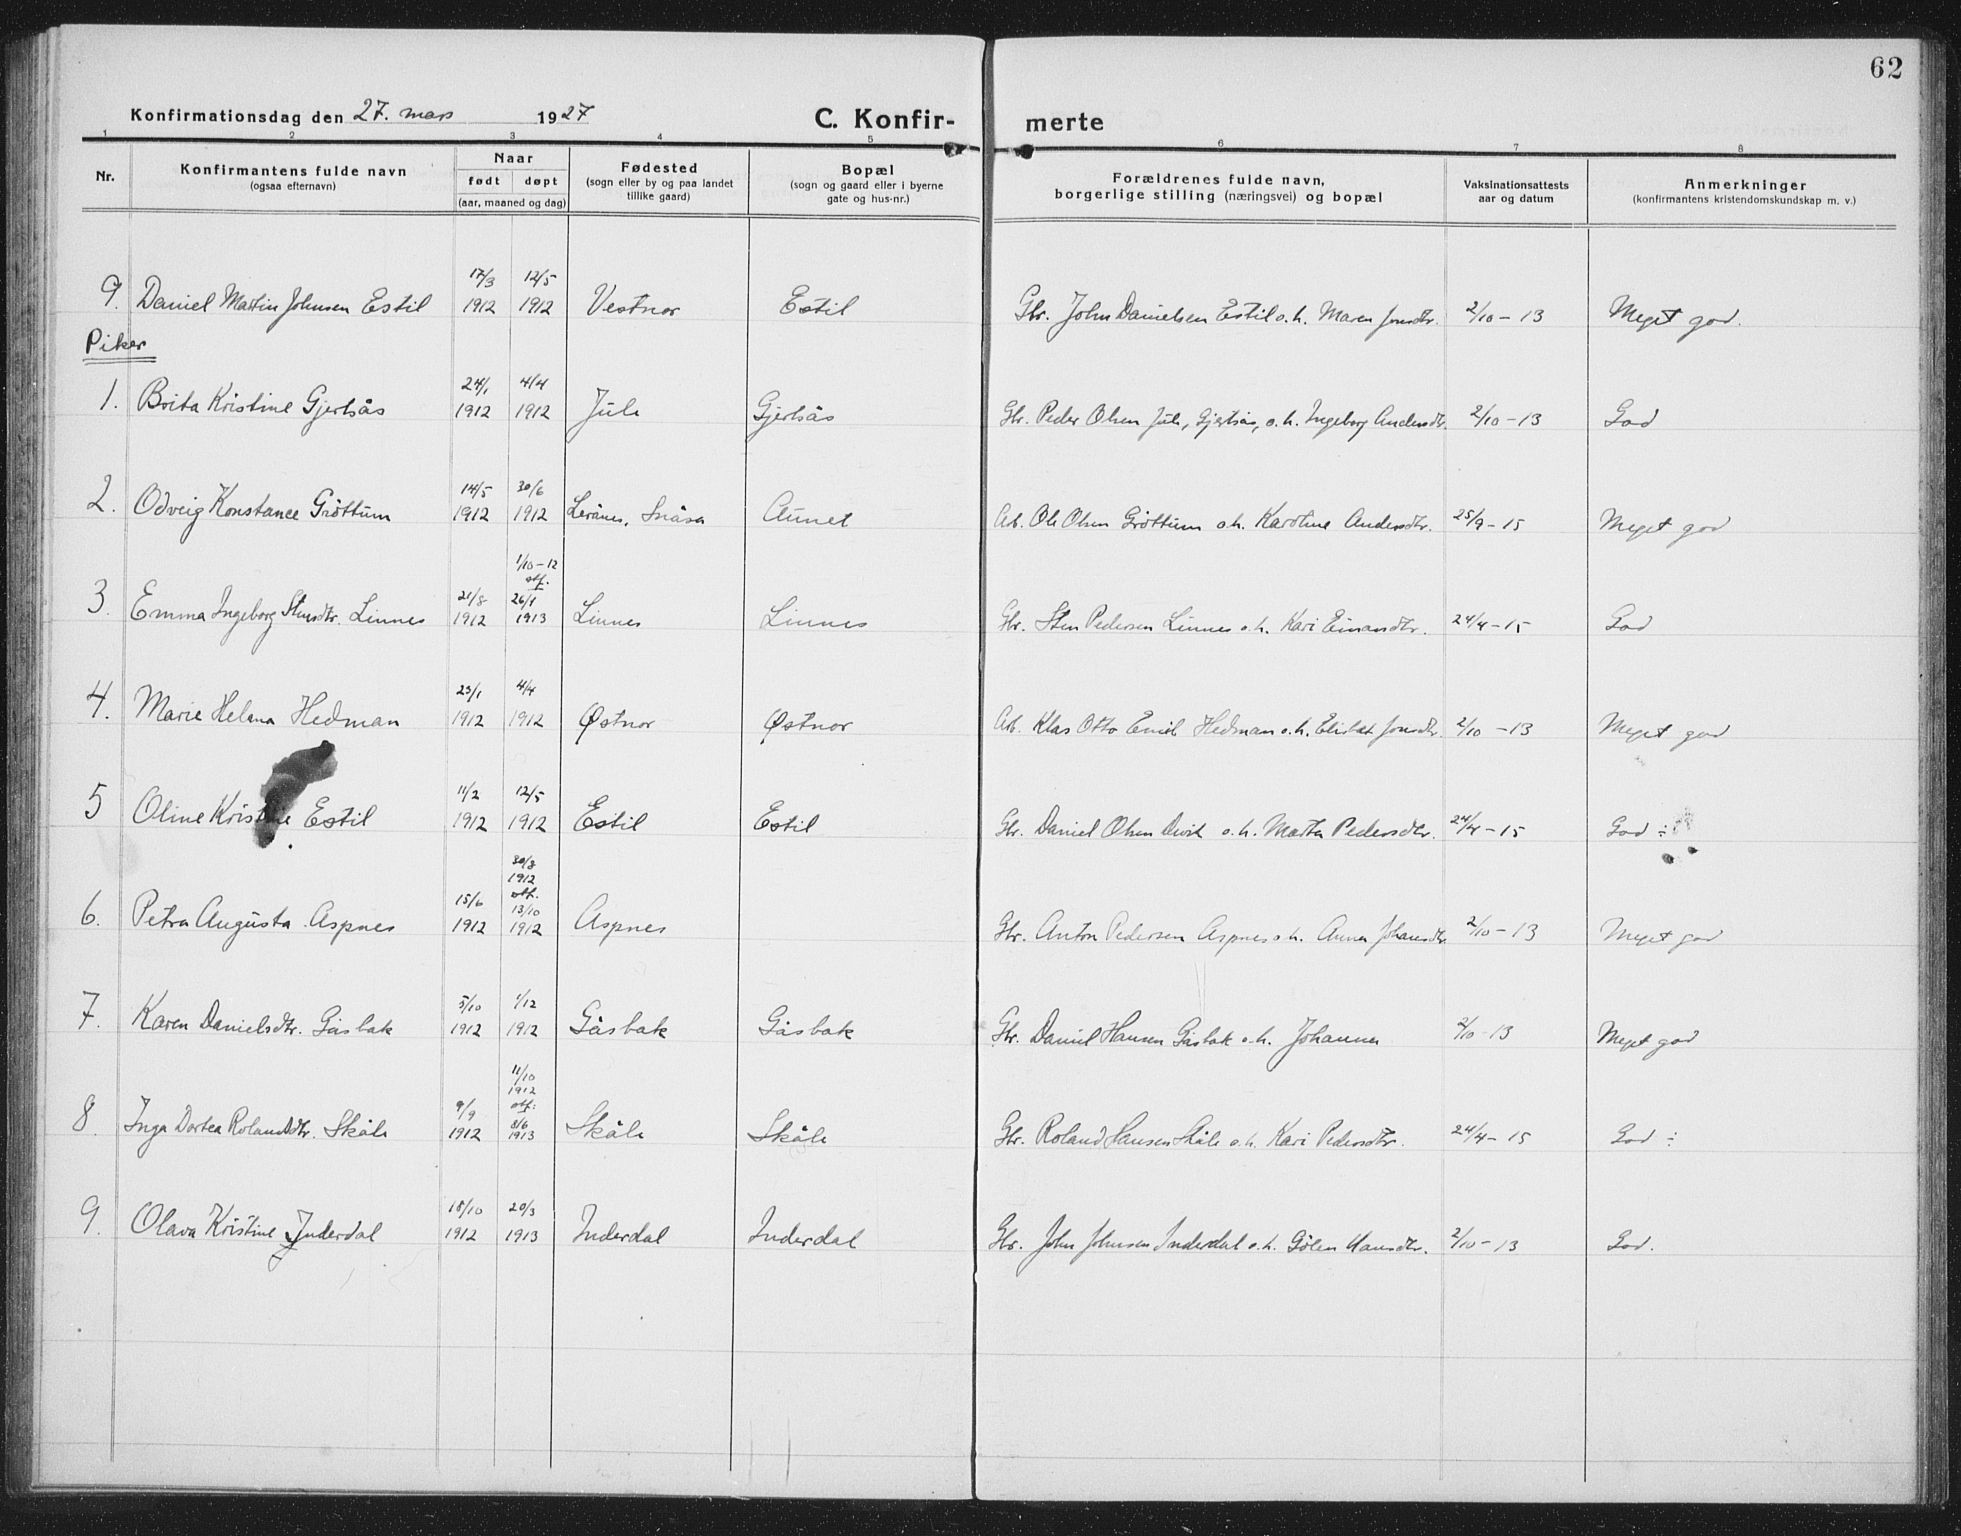 62
Konfirmationsdag den 27. mars 1927 C. Konfir- merte
1 2 3 4 5 6 7 8
Nr. Konfirmantens fulde navn (ogsaa efternavn) Naar født døpt (aar, maaned og dag) Fødested (sogn eller by og paa landet tillike gaard) Bopæl (sogn og gaard eller i byerne gate og hus-nr.) Forældrenes fulde navn, borgerlige stilling (næringsvei) og bopæl Vaksinationsattests aar og datum Anmerkninger (konfirmantens kristendomskundskap m. v.)
9. Daniel Martin Johnsen Estil 17/3 1912 12/5 1912 Vestnor Estil Gbr. John Danielsen Estil o.h. Maren Jonsdtr. 2/10-13 Meget god.
Piker
1. Brita Kristine Gjertsås 24/1 1912 4/4 1912 Jule Gjertsås Gbr. Peder Olsen Jule, Gjertsås, o.h. Ingeborg Andersdtr. 2/10-13 God
2. Odveig Konstance Grøttum 14/5 1912 30/6 1912 Snåsa Aunet Arb. Ole Olsen Grøttum o.h. Karoline Andersdtr. 25/9-15 Meget god
3. Emma Ingeborg Stensdtr. Linnes 21/8 1912 1/10-12 26/1 1913 Linnes Linnes Gbr. Sten Pedersen Linnes o.h. Kari Einarsdtr. 24/4-15 God
4. Marie Helena Hedman 23/1 1912 4/4 1912 Østnor Østnor Arb. Klas Otto Emil Hedman o.h. Elisabet Jonsdtr. 2/10-13 Meget god
5 Oline Kristine Estil 11/2 1912 12/5 1912 Estil Estil Gbr. Daniel Olsen o.h. Marta Pedersdtr. 24/4-15 God ÷
6. Petra Augusta Aspnes 15/6 1912 30/3 1912 13/10 1912 Aspnes Gbr. Anton Pedersen Aspnes o.h. Anna Johansdtr. 2/10-13 Meget god
7. Karen Danielsdtr. Gåsbak 5/10 1912 1/12 1912 Gåsbak Gåsbak Gbr. Daniel Hansen Gåsbak o.h. Johanna 2/10-13 Meget god
8. Inga Dortea Rolandsdtr. Skåle 9/9 1912 11/10 1912 8/6 1913 Skåle Skåle Gbr. Roland Hansen Skåle o.h. Kari Pedersdtr. 24/4-15 God ÷
9. Olava Kristine Inderdal 18/10 1912 20/3 1913 Inderdal Inderdal Gbr. John Johnsen Inderdal o.h. Gølen Hansdtr. 2/10-13 God.